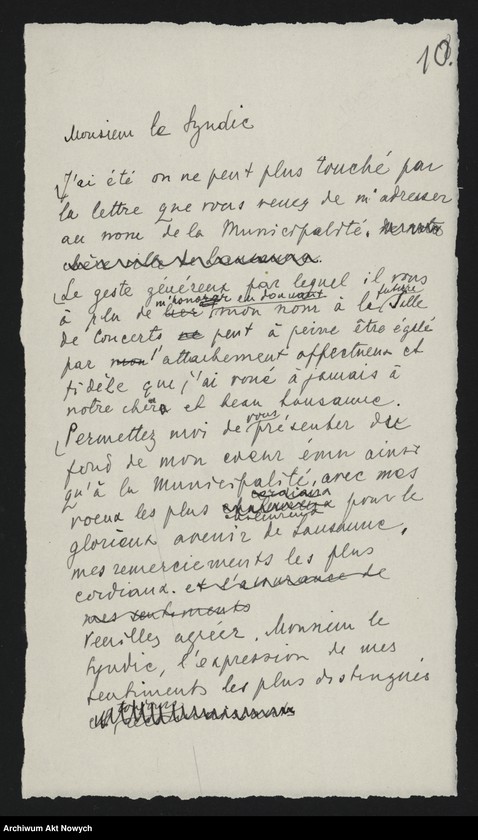 10.
Monsieur le Syndic
J'ai été on ne peut plus touché par
la lettre que vous venez de m'adresser
au nom de la Municipalité. de notre
chère ville de Lausanne.
Le geste généreux par lequel il vous
à plu de lier m'honorer en donnant mon nom à la future Salle
de Concerts ne peut à peine être égalé
par mon l'attachement affectueux et
fidèle que j'ai voué à jamais à
notre chère et beau Lausanne.
Permettez moi de vous présenter du
fond de mon coeur ému ainsi
qu'à la Municipalité, avec mes
voeux les plus cordiaux chaleureux pour le
glorieux avenir de Lausanne,
mes remerciements les plus
cordiaux. et l'assurance de
mes sentiments
Veuillez agréer, Monsieur le
Syndic, l'expression de mes
sentiments les plus distingués
Archiwum Akt Nowych